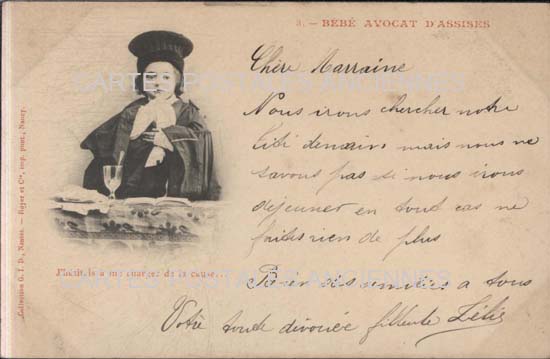 3. — BÉBÉ AVOCAT D'ASSISES
CARTES POSTALES ANCIENNES
Chère Marraine
Nous irons chercher notre
Lili demain, mais nous ne
savons pas si nous irons
déjeuner en tout cas ne
faites rien de plus
Bien des amitiés a tous
Votre toute dévouée filleule
J'hésite à me charger de la cause...
CARTES POSTALES ANCIENNES
Collection G. I. D., Nantes. — Royer et Cie, imp. phot., Nancy.